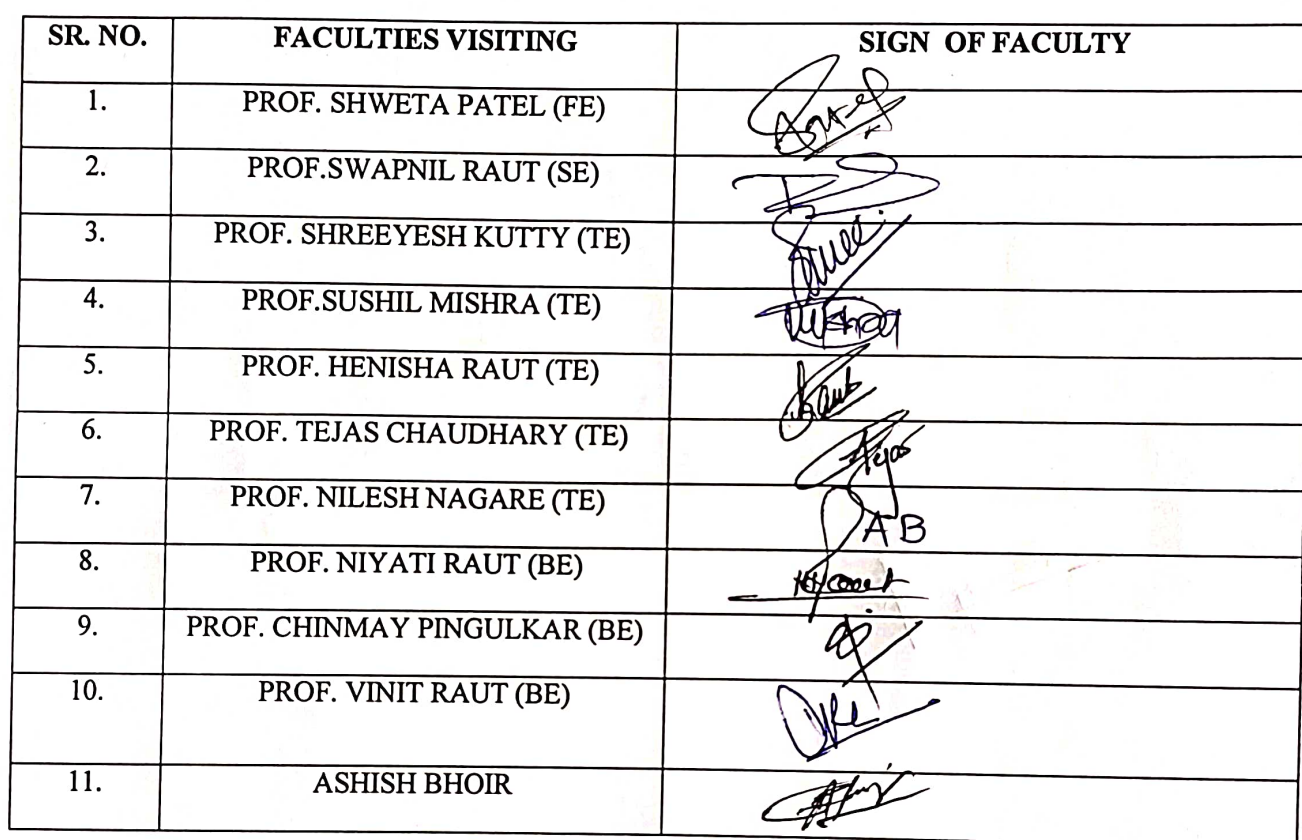 SR. NO. FACULTIES VISITING SIGN OF FACULTY
1. PROF. SHWETA PATEL (FE)
2. PROF.SWAPNIL RAUT (SE)
3. PROF. SHREEYESH KUTTY (TE)
4. PROF.SUSHIL MISHRA (TE)
5. PROF. HENISHA RAUT (TE)
6. PROF. TEJAS CHAUDHARY (TE) Tejas
7. PROF. NILESH NAGARE (TE) AB
8. PROF. NIYATI RAUT (BE)
9. PROF. CHINMAY PINGULKAR (BE)
10. PROF. VINIT RAUT (BE)
11. ASHISH BHOIR